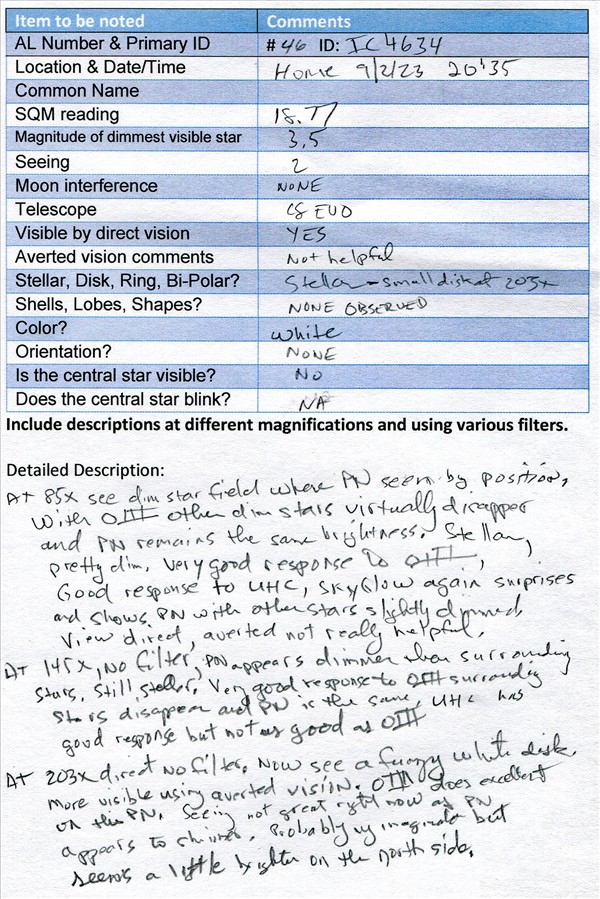 Item to be noted Comments
AL Number & Primary ID # 46 ID: IC4634
Location & Date/Time Home 9/2/23 20:35
Common Name
SQM reading 18.77
Magnitude of dimmest visible star 3.5
Seeing 2
Moon interference NONE
Telescope C8 EVO
Visible by direct vision YES
Averted vision comments Not helpful
Stellar, Disk, Ring, Bi-Polar? Stellar - small disk at 203x
Shells, Lobes, Shapes? NONE OBSERVED
Color? white
Orientation? NONE
Is the central star visible? NO
Does the central star blink? NA
Include descriptions at different magnifications and using various filters.
Detailed Description:
At 85x see dim star field where PN seen by position.
With OIII other dim stars virtually disapper
and PN remains the same brightness. Stellar,
pretty dim. Very good response to OIII,
Good response to UHC, Skyglow again surprises
and shows PN with other stars slightly dimmed.
View direct, averted not really helpful.
At 145x, No filter, PN appears dimmer than surrounding
stars. Still stellar. Very good response to OIII surrounding
stars disappear and PN is the same. UHC has
good response but not as good as OIII
At 203x direct No filter. Now see a fuzzy white disk
more visible using averted vision. OIII does excellent
on this PN. Seeing not great right now as PN
appears to shimmer. Probably my imagination but
seems a little brighter on the north side.